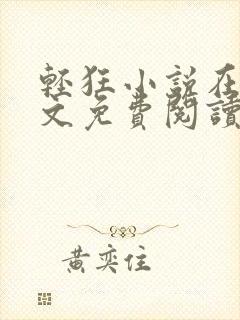 輕狂小說在
文免費閱讀
黃奕住